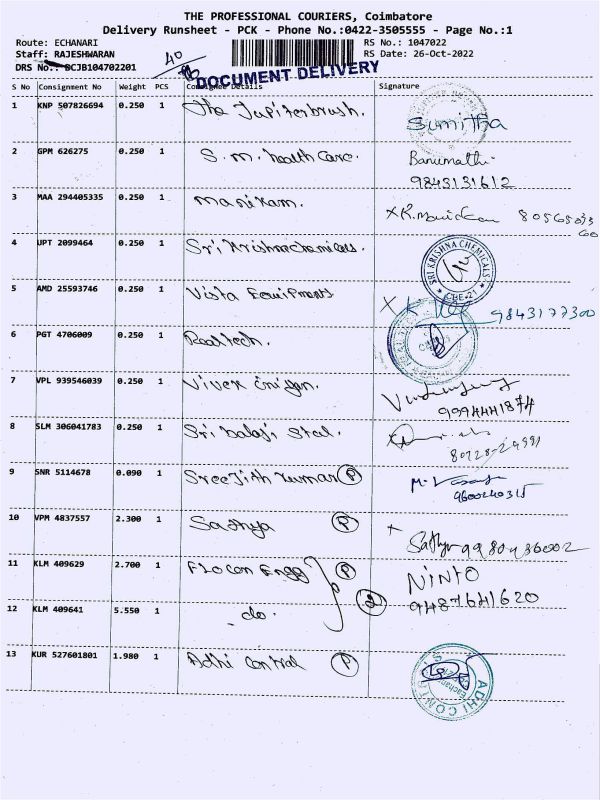 THE PROFESSIONAL COURIERS, Coimbatore
Delivery Runsheet - PCK - Phone No.:0422-3505555 - Page No.:1
Route: ECHANARI
RS No.: 1047022
Staff: RAJESHWARAN
RS Date: 26-Oct-2022
DRS No.: DCJB104702201
40
DOCUMENT DELIVERY
S No Consignment No Weight PCS Consignee Details Signature
1 KNP 507826694 0.250 1 The Jupiterbrush. Sumitha
2 GPM 626275 0.250 1 S.M. health care. Banumathi
9843131612
3 MAA 294405335 0.250 1 manikam.
4 UPT 2099464 0.250 1 Sri Krishnachemicals. SRI KRISHNA CHEMICALS CBE-21
5 AMD 25593746 0.250 1 Vista Equipments X 9843177300
6 PGT 4706009 0.250 1
7 VPL 939546039 0.250 1
9994441874
8 SLM 306041783 0.250 1 Sri balaji steel.
9 SNR 5114678 0.090 1 Sreejith kumar P
9600240315
10 VPM 4837557 2.300 1 Sathya P X Sathya 9980436002
11 KLM 409629 2.700 1 Flocon Engg P NINTO
2 9487641620
12 KLM 409641 5.550 1 do.
13 KUR 527601801 1.980 1 Adhi control P ADHI CONT